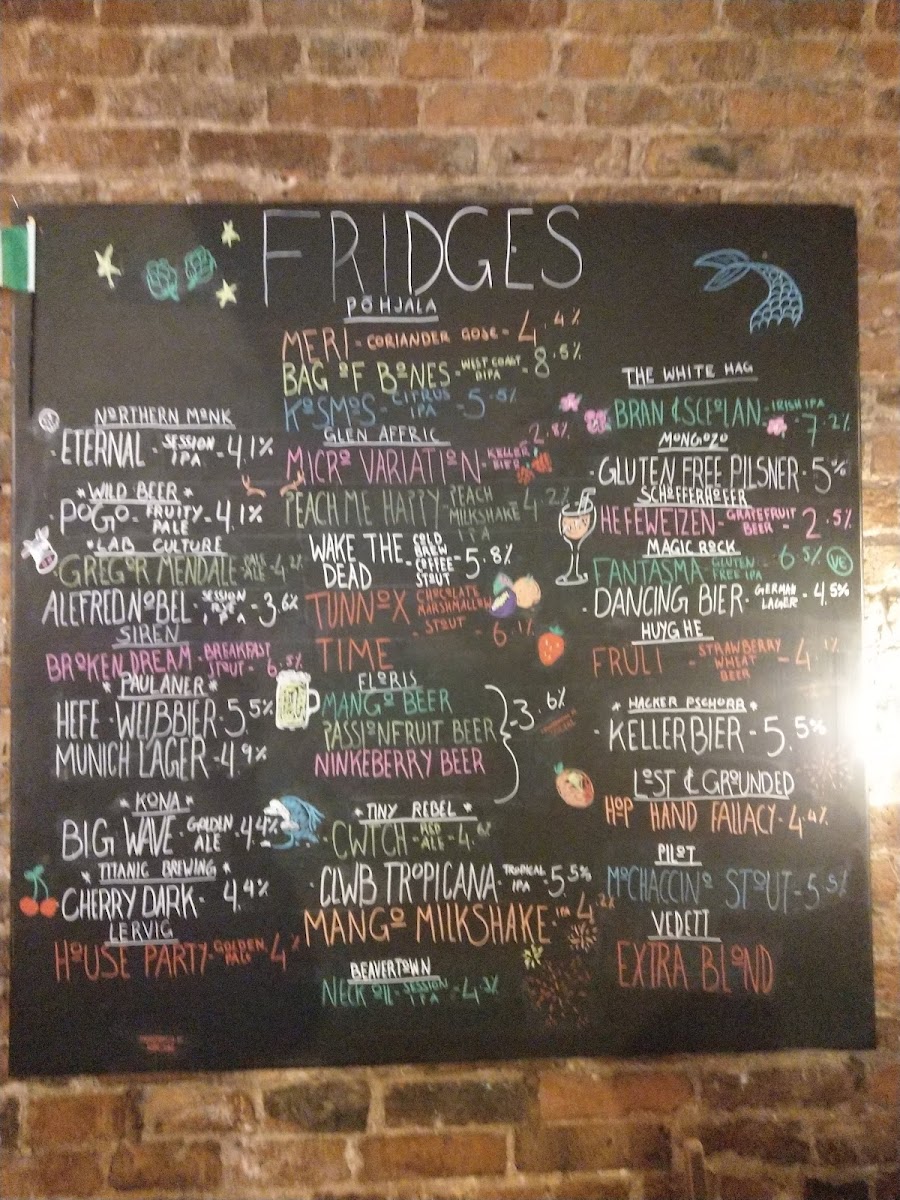 FRIDGES
PÕHJALA
MERI - CORIANDER GOSE - 4.4%
BAG OF BONES - WEST COAST DIPA - 8.5%
KOSMOS - CITRUS IPA - 5.5%
GLEN AFFRIC
MICRO VARIATION - KELLER BIER 2.8%
PEACH ME HAPPY - PEACH MILKSHAKE IPA 4.2%
WAKE THE DEAD - COLD BREW COFFEE STOUT - 5.8%
TUNNOX TIME CHOCOLATE MARSHMALLOW - STOUT - 6.1%
FLORIS
MANGO BEER
PASSIONFRUIT BEER - 3.6%
NINKEBERRY BEER
TINY REBEL
CWTCH - RED ALE - 4.6%
CLWB TROPICANA - TROPICAL IPA - 5.5%
MANGO MILKSHAKE - IPA 4.2%
BEAVERTOWN
NECK OIL - SESSION IPA - 4.3%
NORTHERN MONK
ETERNAL - SESSION IPA - 4.1%
WILD BEER
POGO - FRUITY PALE - 4.1%
LAB CULTURE
GREGOR MENDALE - PALE ALE - 4.2%
ALEFRED NOBEL - SESSION RYE IPA - 3.6%
SIREN
BROKEN DREAM - BREAKFAST STOUT - 6.5%
PAULANER
HEFE - WEIßBIER - 5.5%
MUNICH LAGER - 4.9%
KONA
BIG WAVE - GOLDEN ALE - 4.4%
TITANIC BREWING
CHERRY DARK - 4.4%
LERVIG
HOUSE PARTY - GOLDEN PALE - 4%
THE WHITE HAG
BRAN & SCEOLAN - IRISH IPA - 7.2%
MONGOZO
GLUTEN FREE PILSNER - 5%
SCHÖFFERHOFER
HEFEWEIZEN - GRAPEFRUIT BEER - 2.5%
MAGIC ROCK
FANTASMA - GLUTEN FREE IPA - 6.5% VE
DANCING BIER - GERMAN LAGER - 4.5%
HUYGHE
FRULI - STRAWBERRY WHEAT BEER - 4.1%
HACKER PSCHORR
KELLERBIER - 5.5%
LOST & GROUNDED
HOP HAND FALLACY - 4.4%
PILOT
MOCHACCINO STOUT - 5.5%
VEDETT
EXTRA BLOND